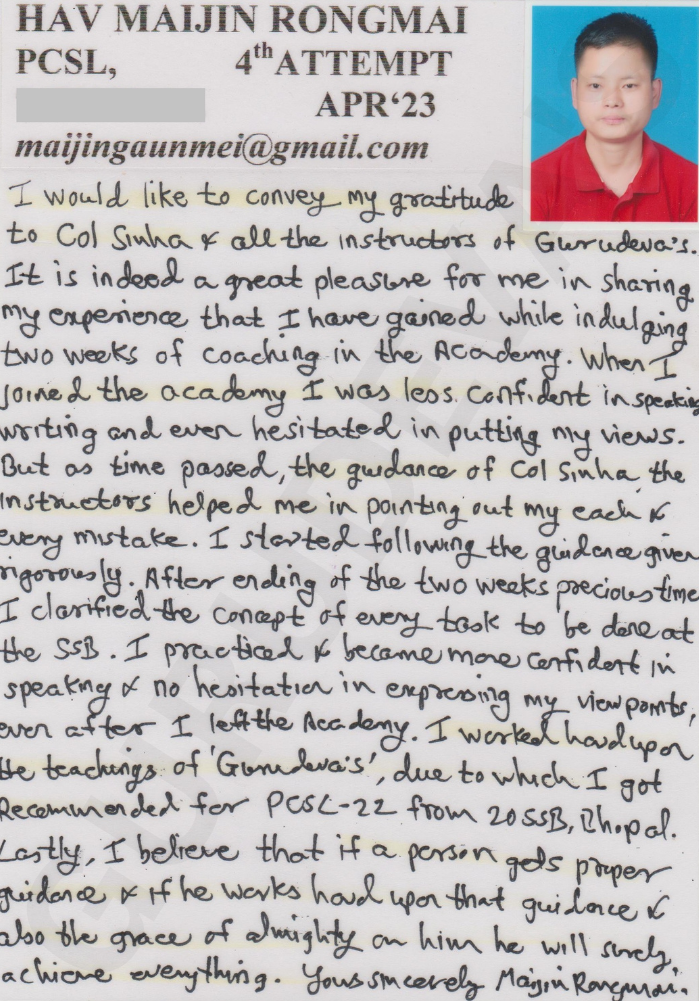 HAV MAIJIN RONGMAI
PCSL, 4th ATTEMPT
APR‘23
maijingaunmei@gmail.com
I would like to convey my gratitude
to Col Sinha & all the instructors of Gurudeva's.
It is indeed a great pleasure for me in sharing
my experience that I have gained while indulging
two weeks of coaching in the Academy. When I
joined the academy I was less confident in speaking
writing and even hesitated in putting my views.
But as time passed, the guidance of Col Sinha, the
instructors helped me in pointing out my each &
every mistake. I started following the guidance given
rigorously. After ending of the two weeks precious time
I clarified the concept of every task to be done at
the SSB. I practiced & became more confident in
speaking & no hesitation in expressing my viewpoints,
even after I left the Academy. I worked hard upon
the teachings of 'Gurudeva's', due to which I got
Recommended for PCSL-22 from 20 SSB, Bhopal.
Lastly, I believe that if a person gets proper
guidance & if he works hard upon that guidance &
also the grace of almighty on him he will surely,
achieve everything. Yours sincerely Maijin Rongmai.
GURUDEVA